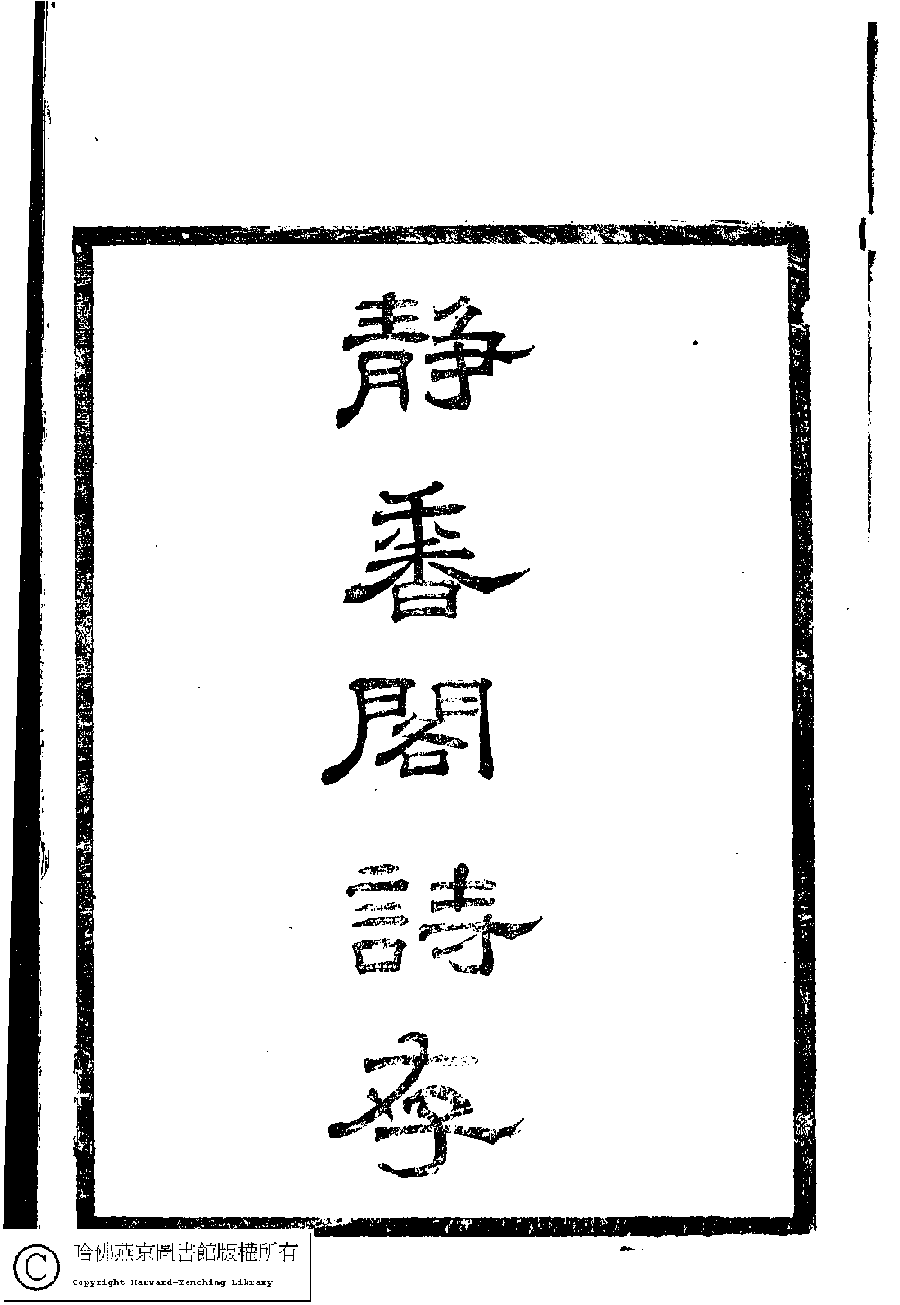 靜香閣詩存
哈佛燕京圖書館版權所有
Copyright Harvard-Yenching Library